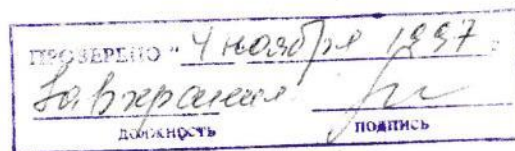 ПРОВЕРЕНО " 4 ноября 1997 г.
Зав.хранения
должность подпись